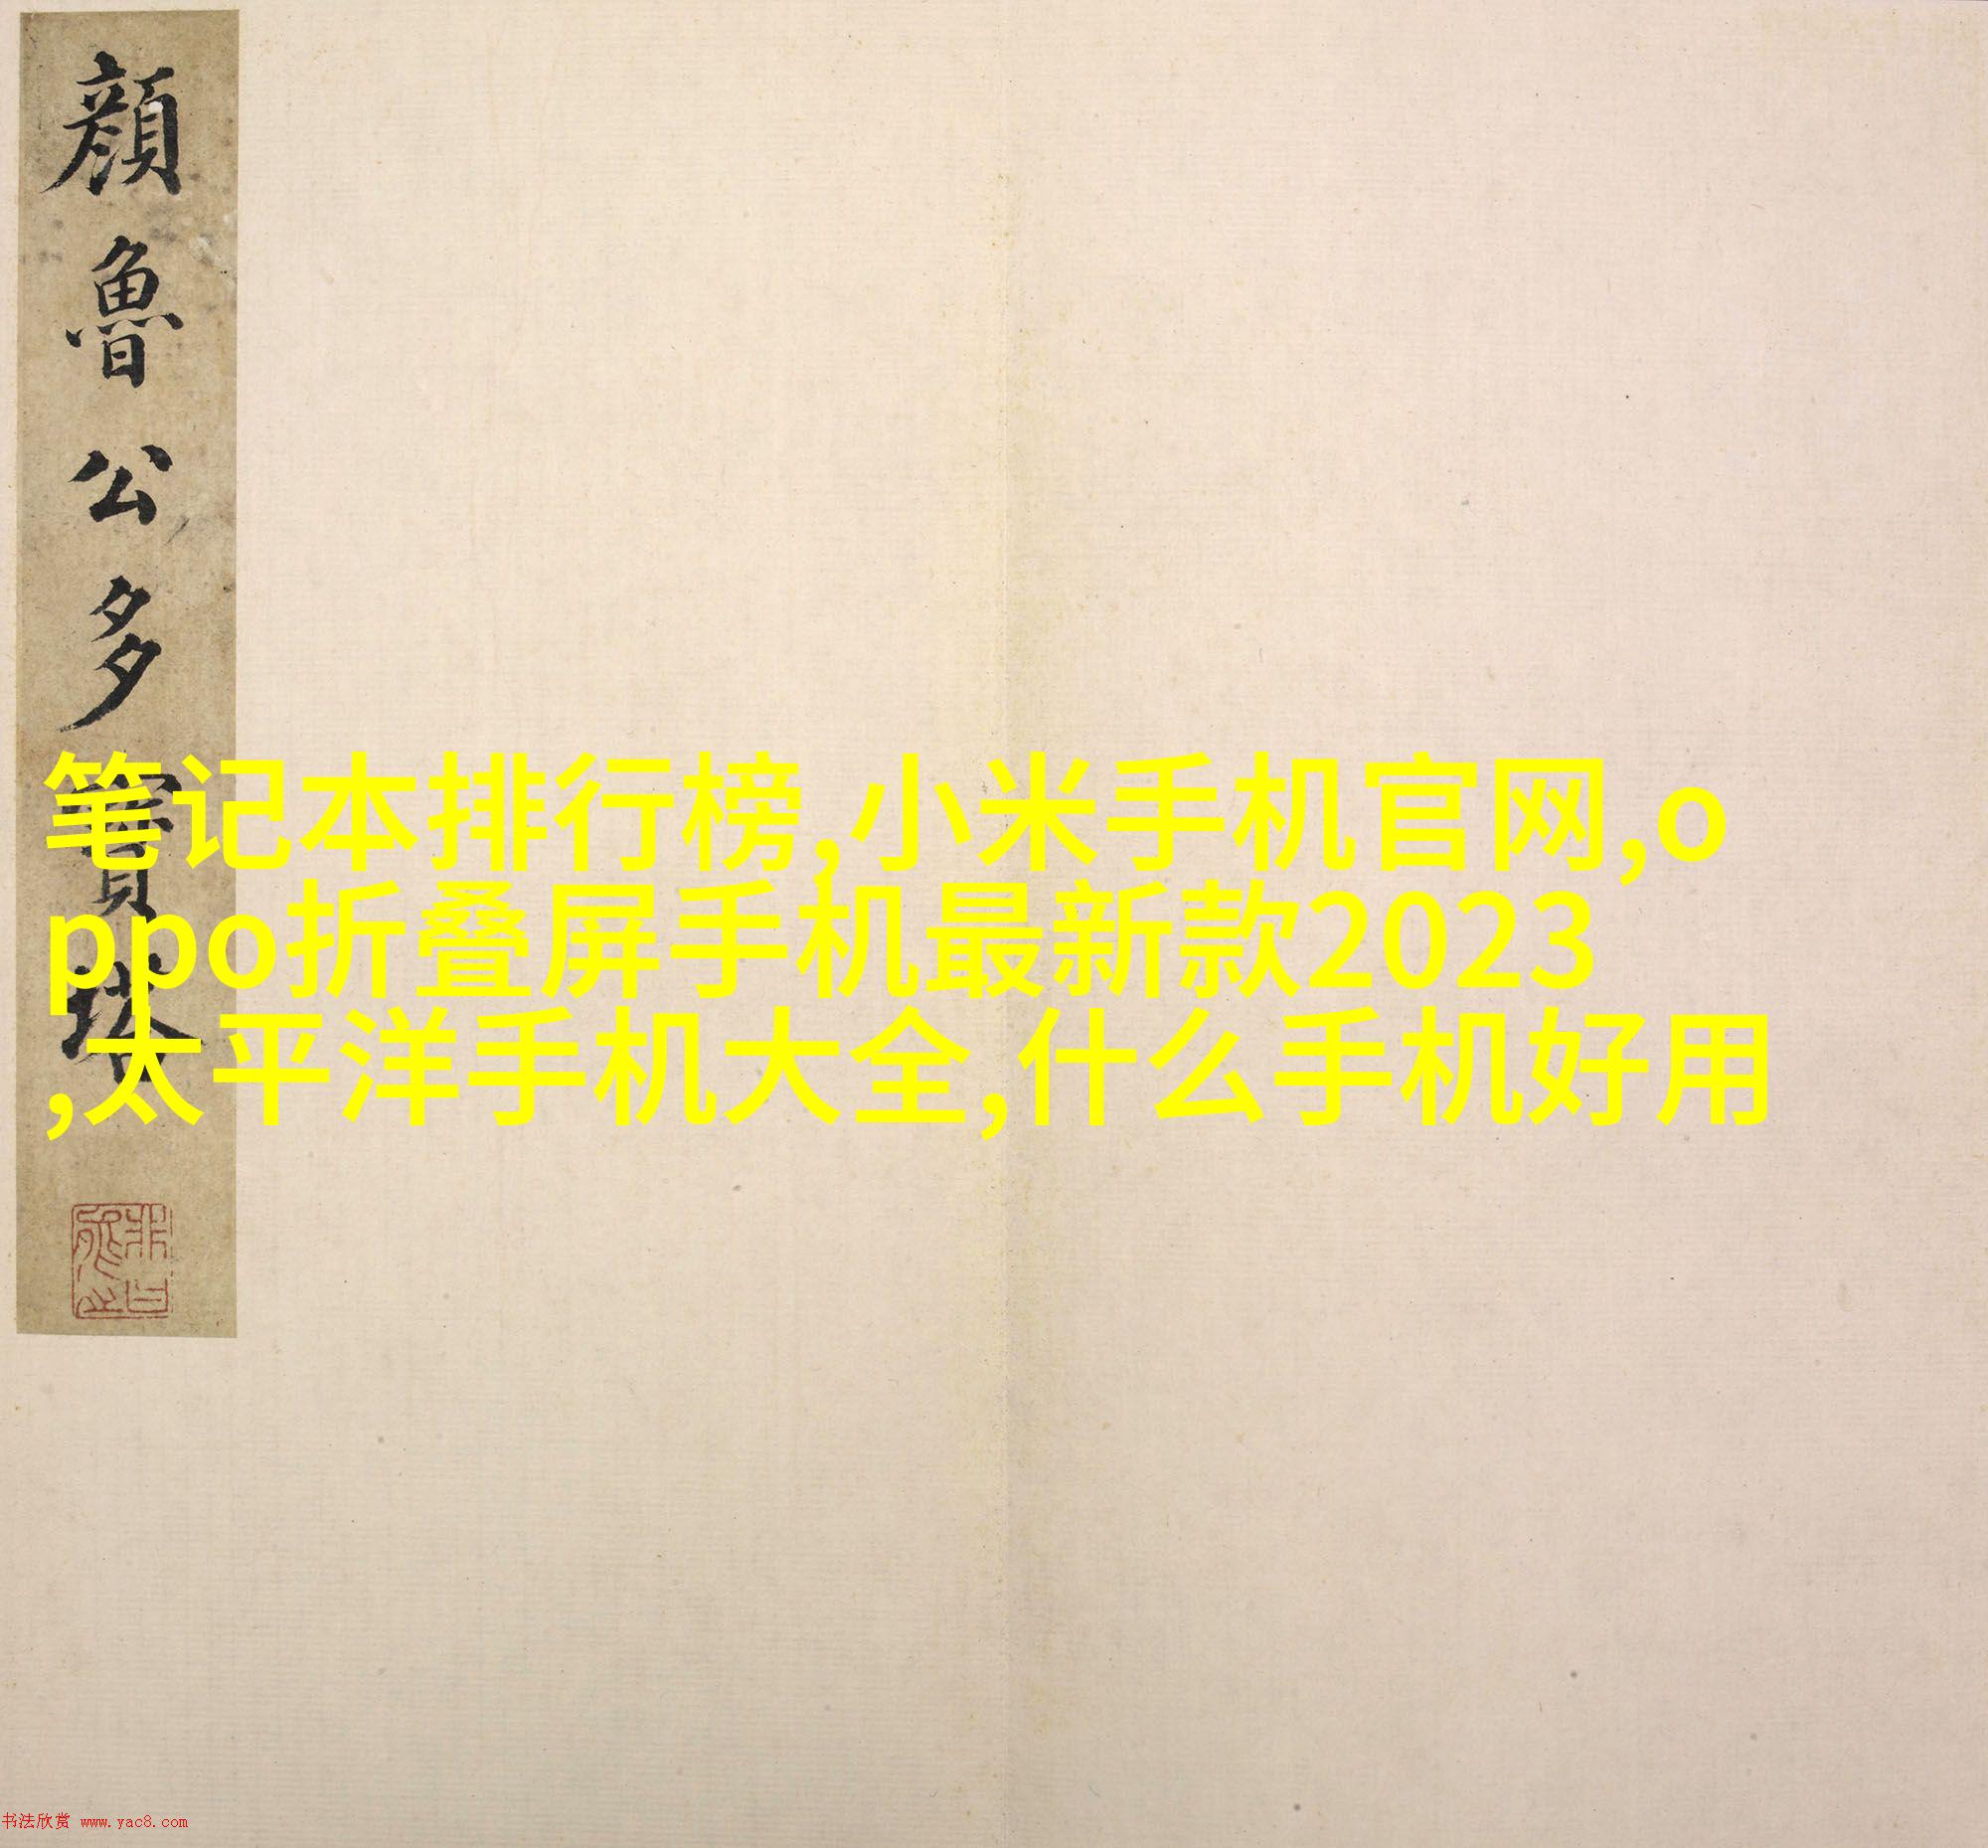 顔魯公多寶塔
笔记本排行榜,小米手机官网,o
ppo折叠屏手机最新款2023
,太平洋手机大全,什么手机好用
书法欣赏 www.yac8.com